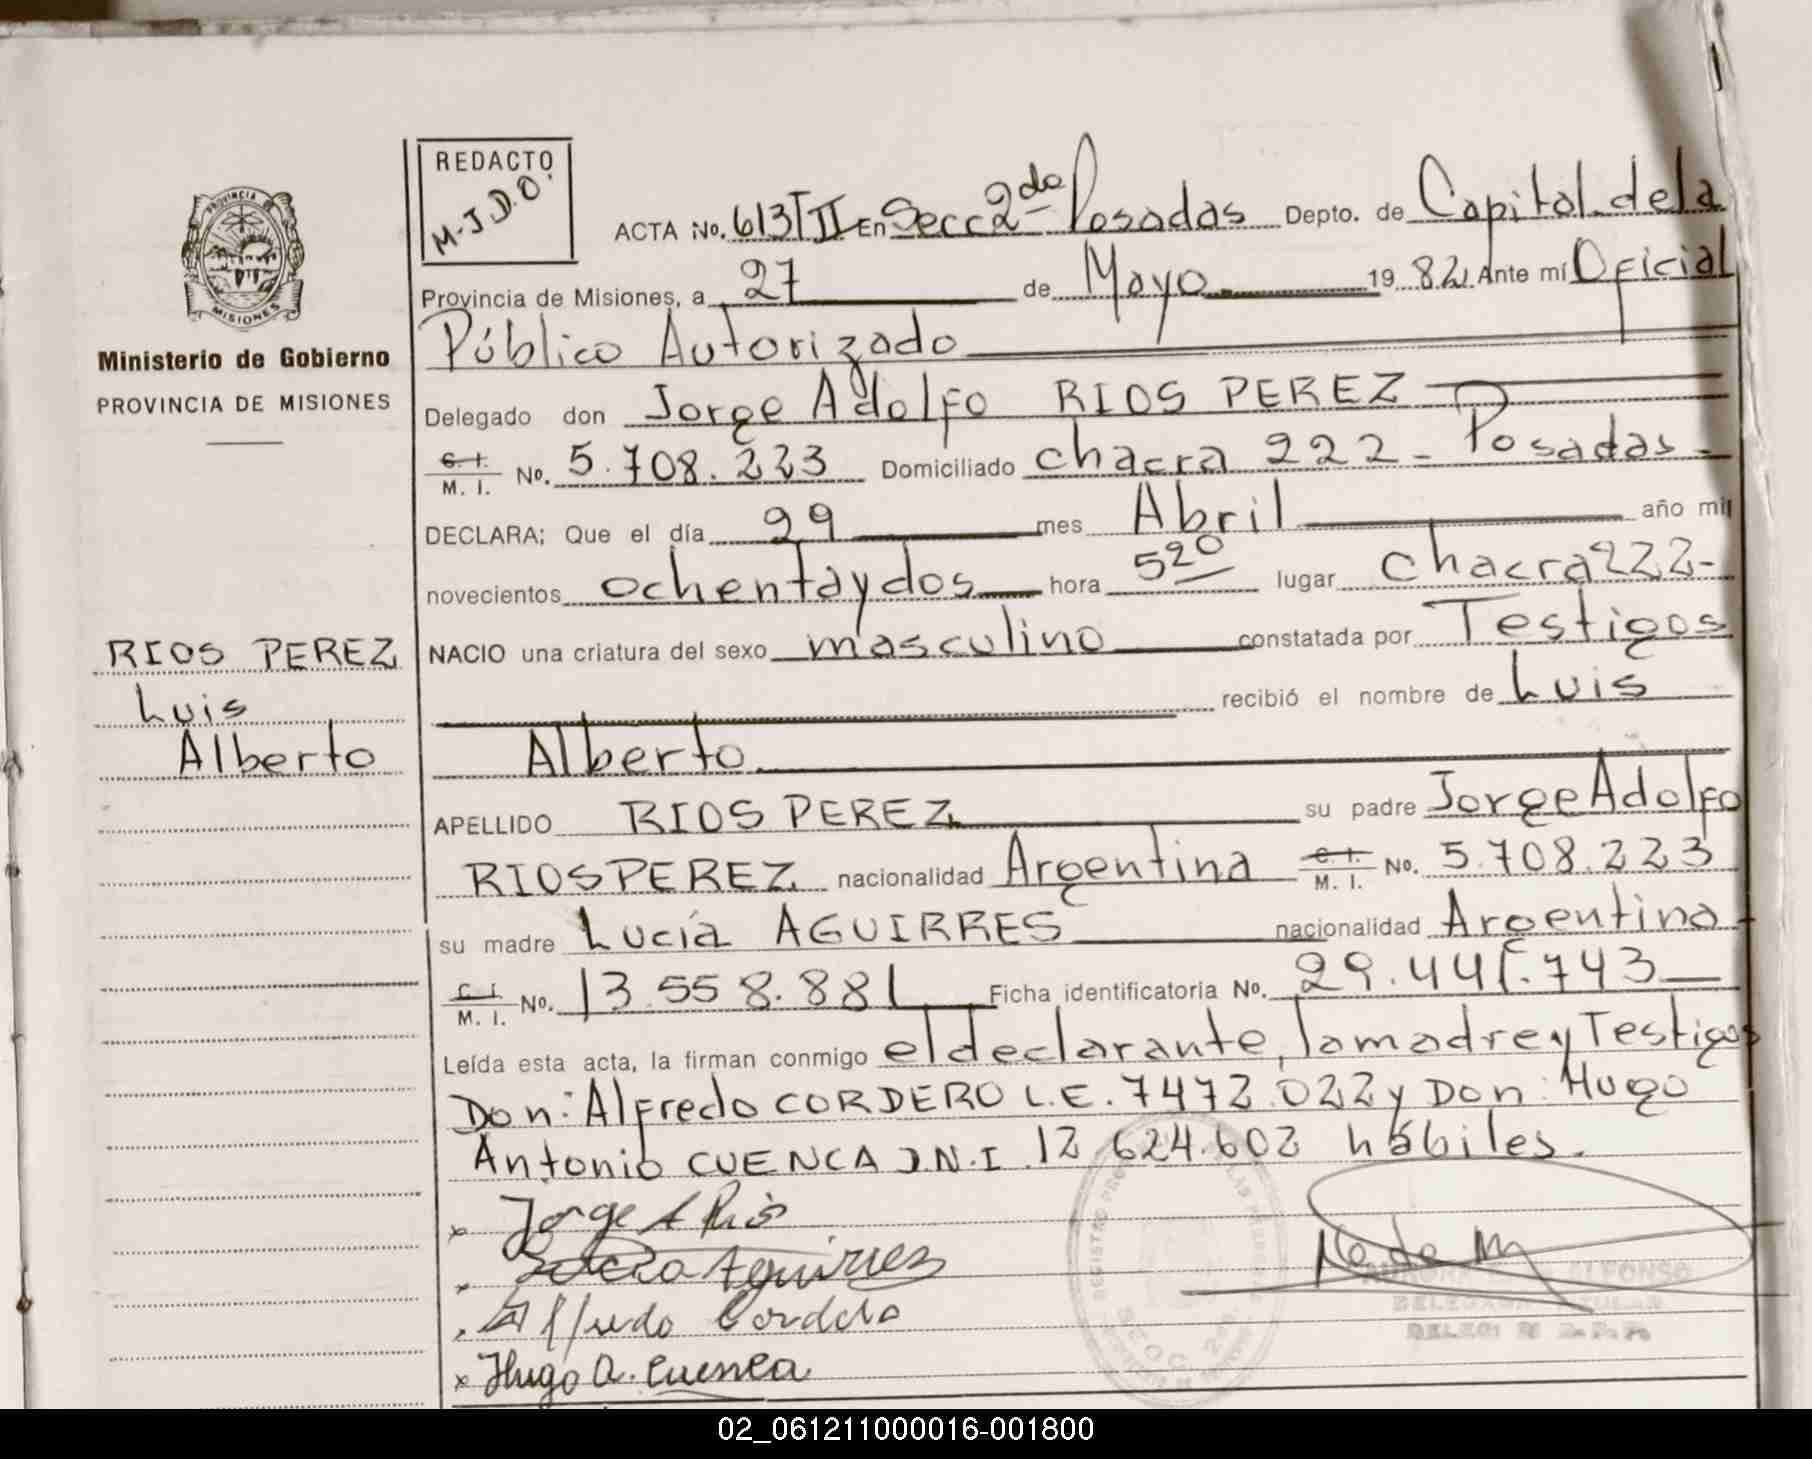 REDACTO
M.J.D.O.
PROVINCIA DE
MISIONES
ACTA No. 613/II En Secc 2da Posadas Depto. de Capital de la
Provincia de Misiones, a 27 de Mayo 19 82 Ante mí Oficial
Ministerio de Gobierno
PROVINCIA DE MISIONES
Público Autorizado
Delegado don Jorge Adolfo RIOS PEREZ
C. I. M. I. No. 5.708.223 Domiciliado chacra 222 - Posadas -
DECLARA; Que el día 29 mes Abril año mil
novecientos ochentaydos hora 5 20 lugar chacra 222 -
RIOS PEREZ
Luis
Alberto
NACIO una criatura del sexo masculino constatada por Testigos
recibió el nombre de Luis
Alberto
APELLIDO RIOS PEREZ su padre Jorge Adolfo
RIOS PEREZ nacionalidad Argentina C. I. M. I. No. 5.708.223
su madre Lucía AGUIRRES nacionalidad Argentina -
C. I. M. I. No. 13.558.881 Ficha identificatoria No. 29.441.743
Leída esta acta, la firman conmigo el declarante, la madre y Testigos
Don: Alfredo CORDERO L.E. 7472.022 y Don: Hugo
Antonio CUENCA D.N.I. 12.624.602 hábiles.
x Jorge A Rios
Aguirres
Alfredo Cordero
x Hugo A. Cuenca
ALFONSO
02_061211000016-001800